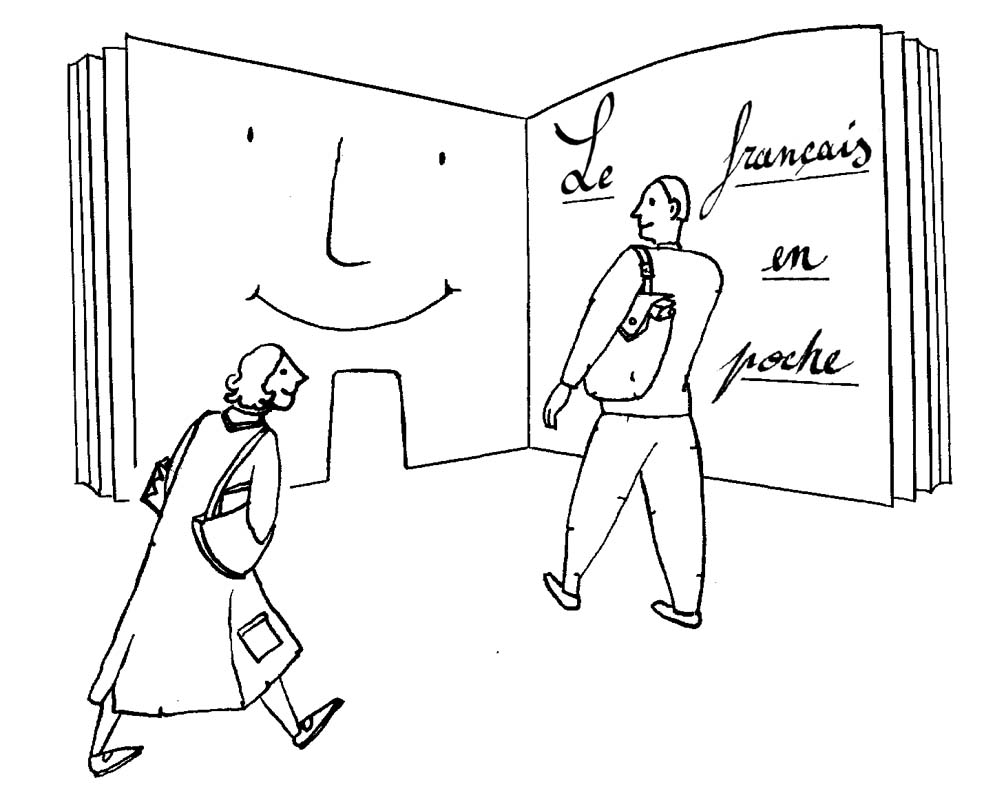 Le français
en
poche